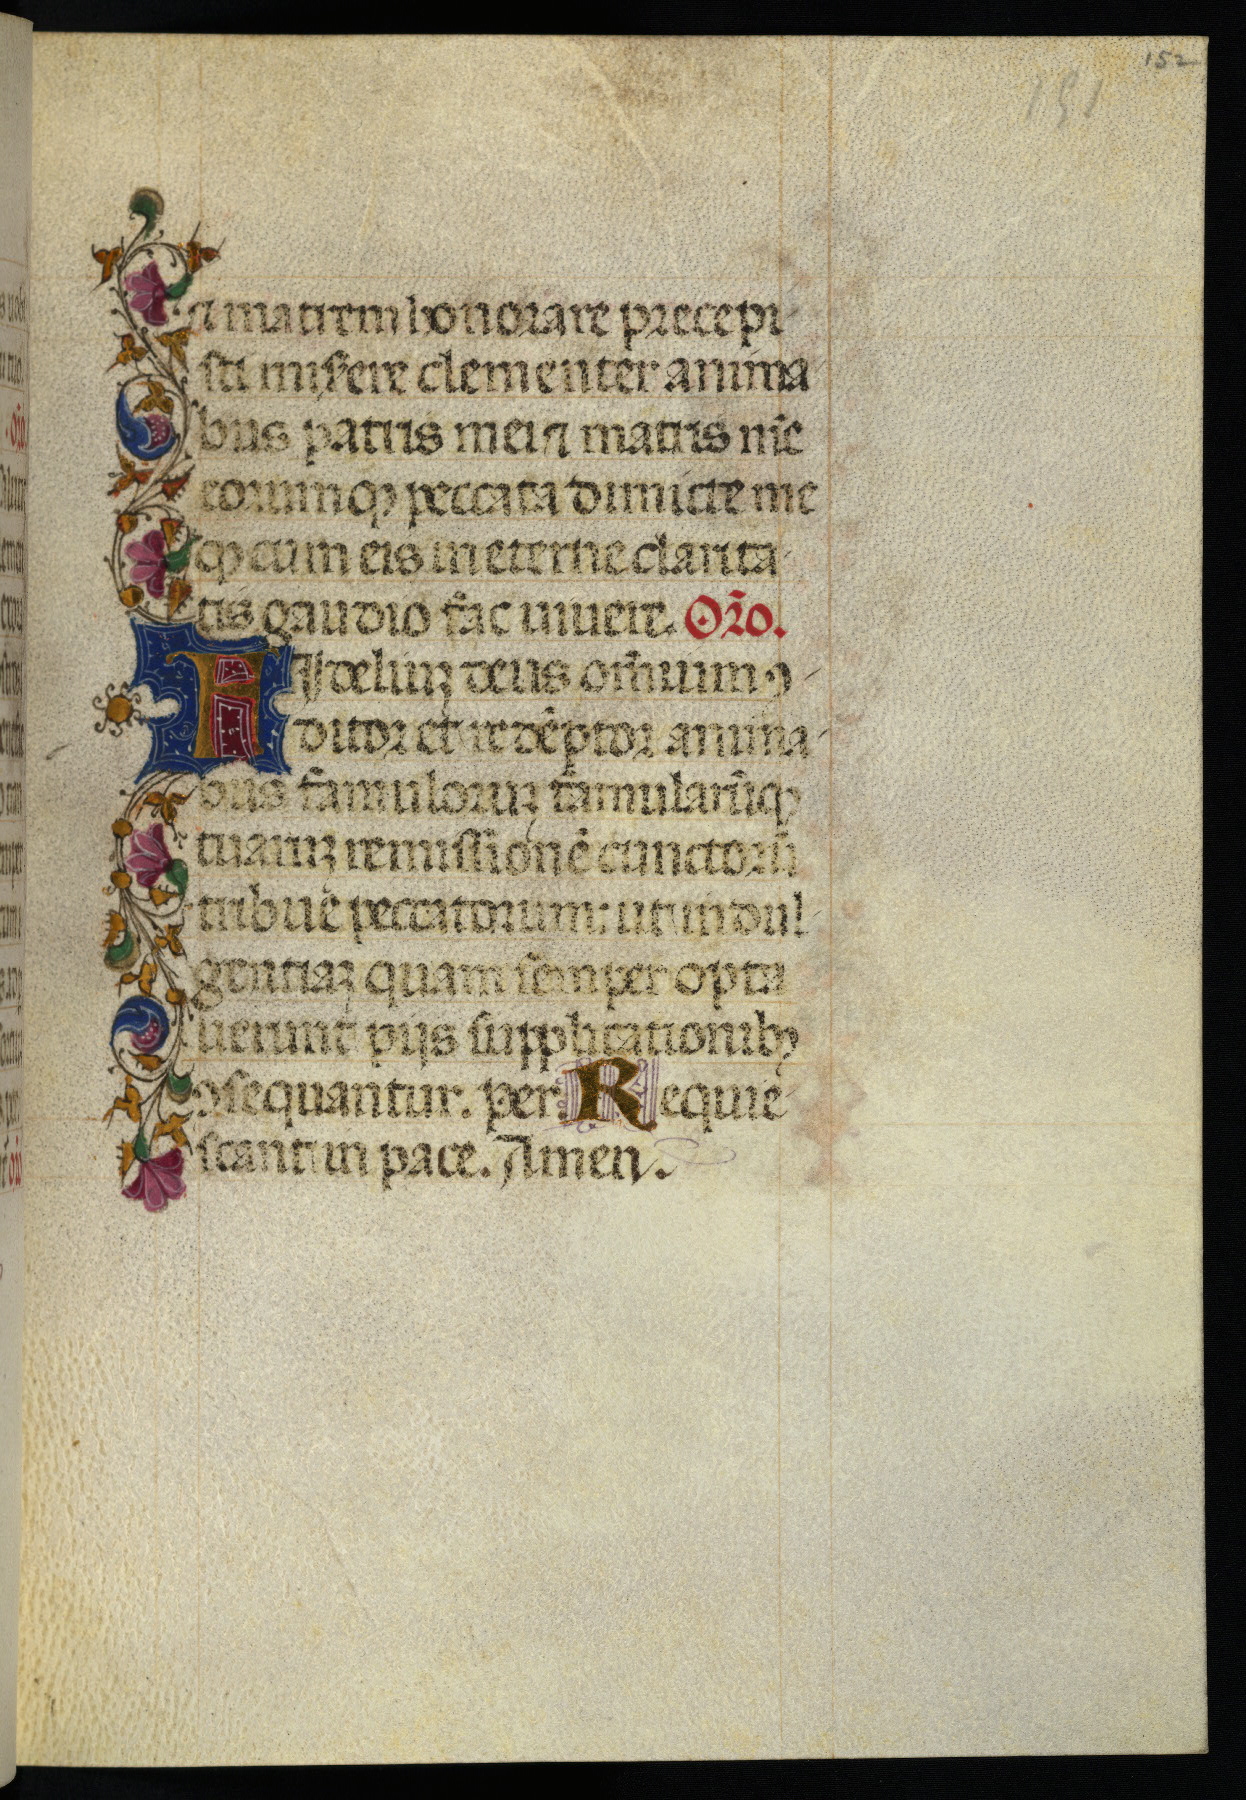 152
151
⁊ matrem honorare precepi
sti miserere clementer anima
bus patris mei ⁊ matris mēe
eorumqꝫ peccata dimicte me
qꝫ cum eis in eterne clarita
tis gaudio fac uiuere. Or̄o.
Fidelium deus om̄ium ꝯ
ditor et redēptor anima
bus famuloruꝫ famularūqꝫ
tuaruꝫ remissionē cunctorū
tribue peccatorum: ut indul
gentiaꝫ quam semper opta
uerunt pijs supplicationibꝫ
ꝯsequantur. per. Requie
scant in pace. Amen.